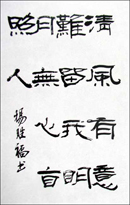 清風有意
難留我明
月無心自
照人
楊继福书